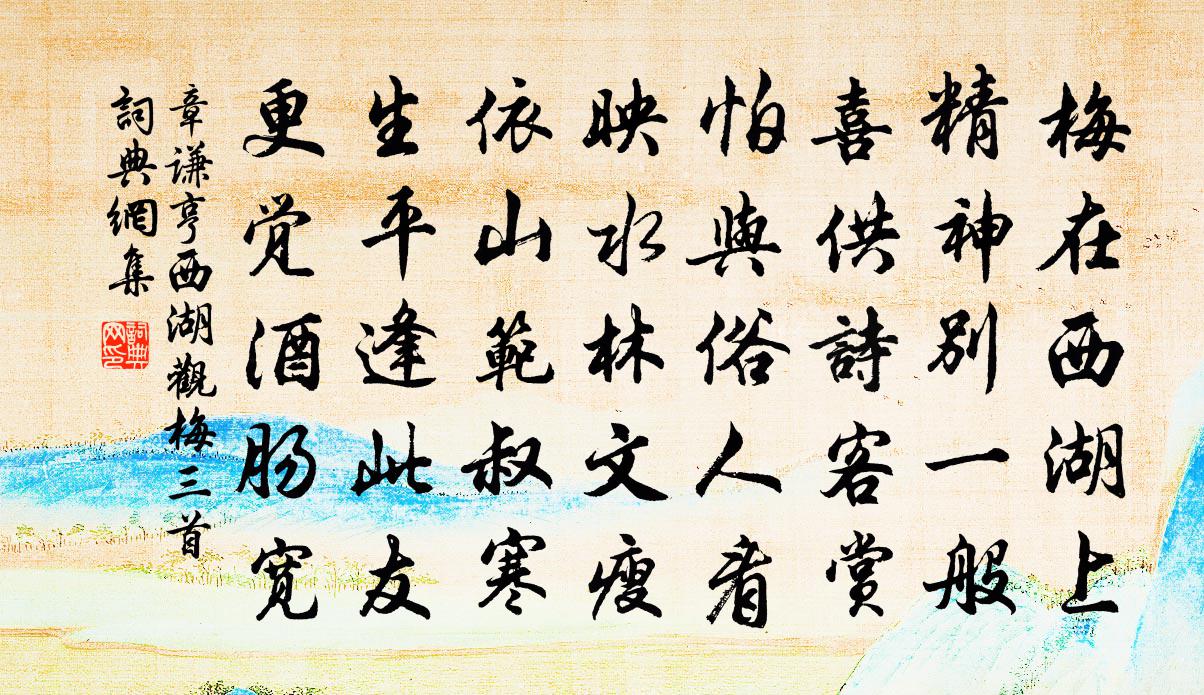 梅在西湖上
精神别一般
喜供詩客賞
怕與俗人看
映水林文瘦
依山範叔寒
生平逢此友
更觉酒肠宽
章谦亨西湖觀梅三首
詞典網集
詞典網印